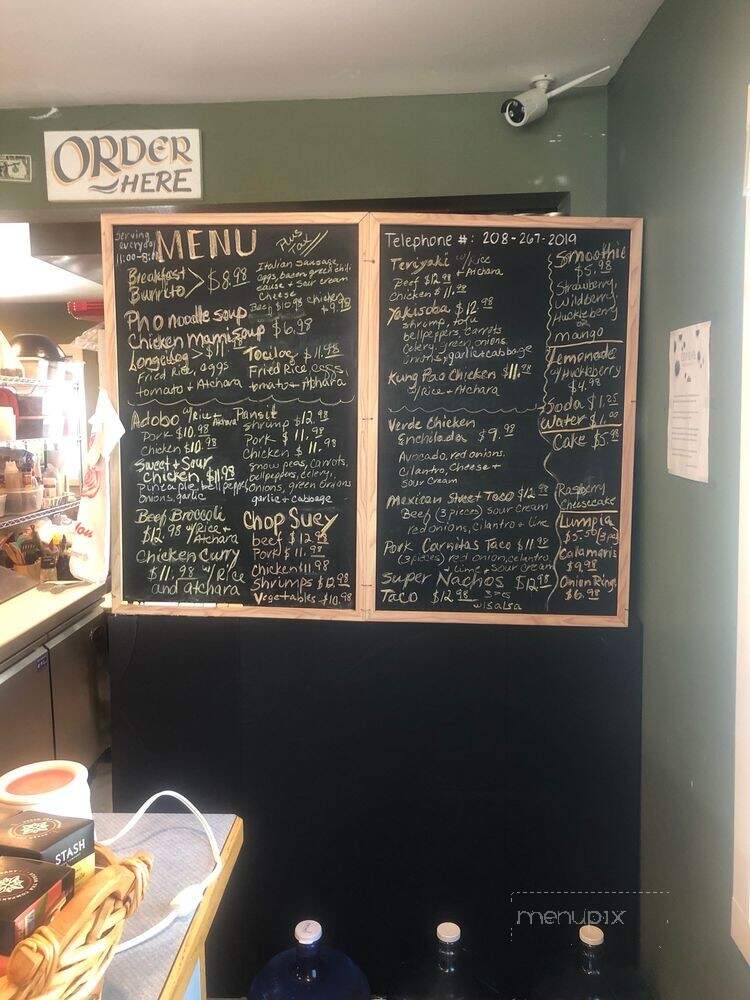 ORDER
HERE
Serving
everyday
11:00-8:00
MENU
Plus
Tax
Breakfast
Burrito > $8.98
Italian Sausage,
eggs, bacon, green chili
sauce + sour cream
Cheese
Beef $10.98 chicken
$9.98
Pho noodle soup
Chicken mami soup $6.98
Longsilog $11.98
Fried Rice, eggs
tomato + Atchara
Tocilog $11.48
Fried Rice eggs,
tomato + Atchara
Adobo w/Rice + Atchara
Pork $10.98
Chicken $10.98
Sweet + Sour
chicken $11.98
Pineaple, bell pepper
onions, garlic
Beef Broccoli
$12.98 w/Rice +
Atchara
Chicken Curry
$11.98 w/ Rice
and atchara
Pansit
Shrimp $12.98
Pork $11.98
Chicken $11.98
Snow peas, carrots,
bellpeppers, celery,
onions, green onions
garlic + cabbage
Chop Suey
beef $12.98
Pork $11.98
Chicken $11.98
Shrimps $12.98
Vegetables $10.98
Telephone #: 208-267-2019
Teriyaki w/Rice
+ Atchara
Beef $12.98
Chicken $11.98
Yakisoba $12.98
shrimp, tofu
bellpeppers, carrots
Celery, green onions,
Onions, garlic + cabbage
Kung Pao Chicken $11.98
w/Rice + Atchara
Verde Chicken
Enchiladas $9.98
Avocado, red onions,
Cilantro, Cheese +
sour Cream
Mexican Street Taco $12.98
Beef (3 pieces) sour Cream
red onions, cilantro + Lime
Pork Carnitas Taco $11.98
(3 pieces) red onion, cilantro
+ Lime + Sour Cream
Super Nachos $12.98
Taco $12.98 3 pcs
w/salsa
Smoothie
$5.98
Strawberry,
Wildberry,
Huckleberry
or
mango
Lemonade
w/Huckleberry
$4.98
Soda $1.25
Water $1.00
Cake $5.98
Raspberry
Cheesecake
Lumpia
$5.50 (3pc)
Calamaris
$9.98
Onion Rings
$6.98
STASH
menupix